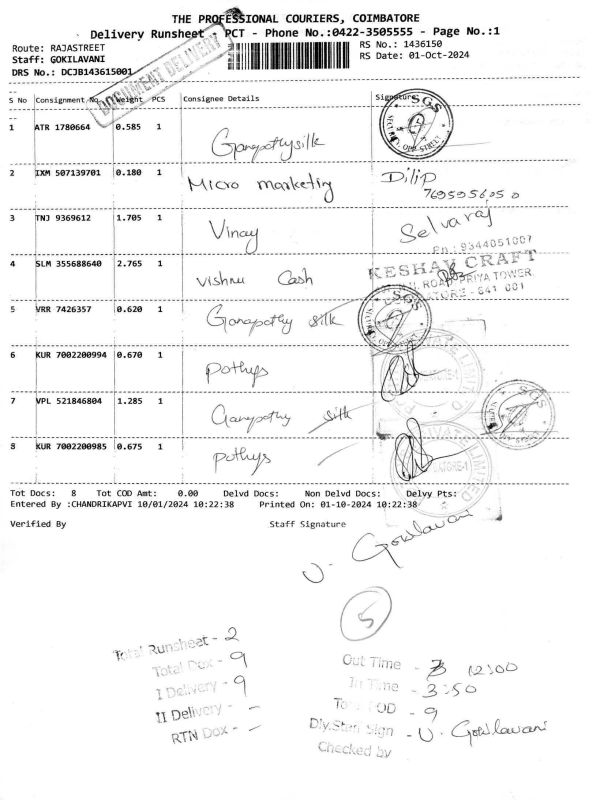 THE PROFESSIONAL COURIERS, COIMBATORE
Delivery Runsheet - PCT - Phone No.:0422-3505555 - Page No.:1
Route: RAJASTREET
RS No.: 1436150
Staff: GOKILAVANI
RS Date: 01-Oct-2024
DRS No.: DCJB143615001
DOCUMENT DELIVERY
S No Consignment No. Weight PCS Consignee Details Signature
1 ATR 1780664 0.585 1 Ganapathysilk SGS
2 IXM 507139701 0.180 1 Micro marketing Dilip
3 TNJ 9369612 1.705 1 Vinay Selvaraj
Ph.: 9344051007
4 SLM 355688640 2.765 1 Vishnu Cash KESHAV CRAFT
ROAD PRIYA TOWER
641 001
5 VRR 7426357 0.620 1 Ganapathy silk SGS
6 KUR 7002200994 0.670 1 Pothys
7 VPL 521846804 1.285 1 Ganapathy silk SGS
8 KUR 7002200985 0.675 1 Pothys
Tot Docs: 8 Tot COD Amt: 0.00 Delvd Docs: Non Delvd Docs: Delvy Pts:
Entered By :CHANDRIKAPVI 10/01/2024 10:22:38 Printed On: 01-10-2024 10:22:38
Verified By Staff Signature
U. Gokilavani
5
Total Runsheet - 2
Total Dox - 9
I Delivery - 9
II Delivery - -
RTN Dox - -
Out Time - 12:00
In Time - 3:50
Total POD - 9
Dly.Sten Sign - U. Gokilavani
Checked by